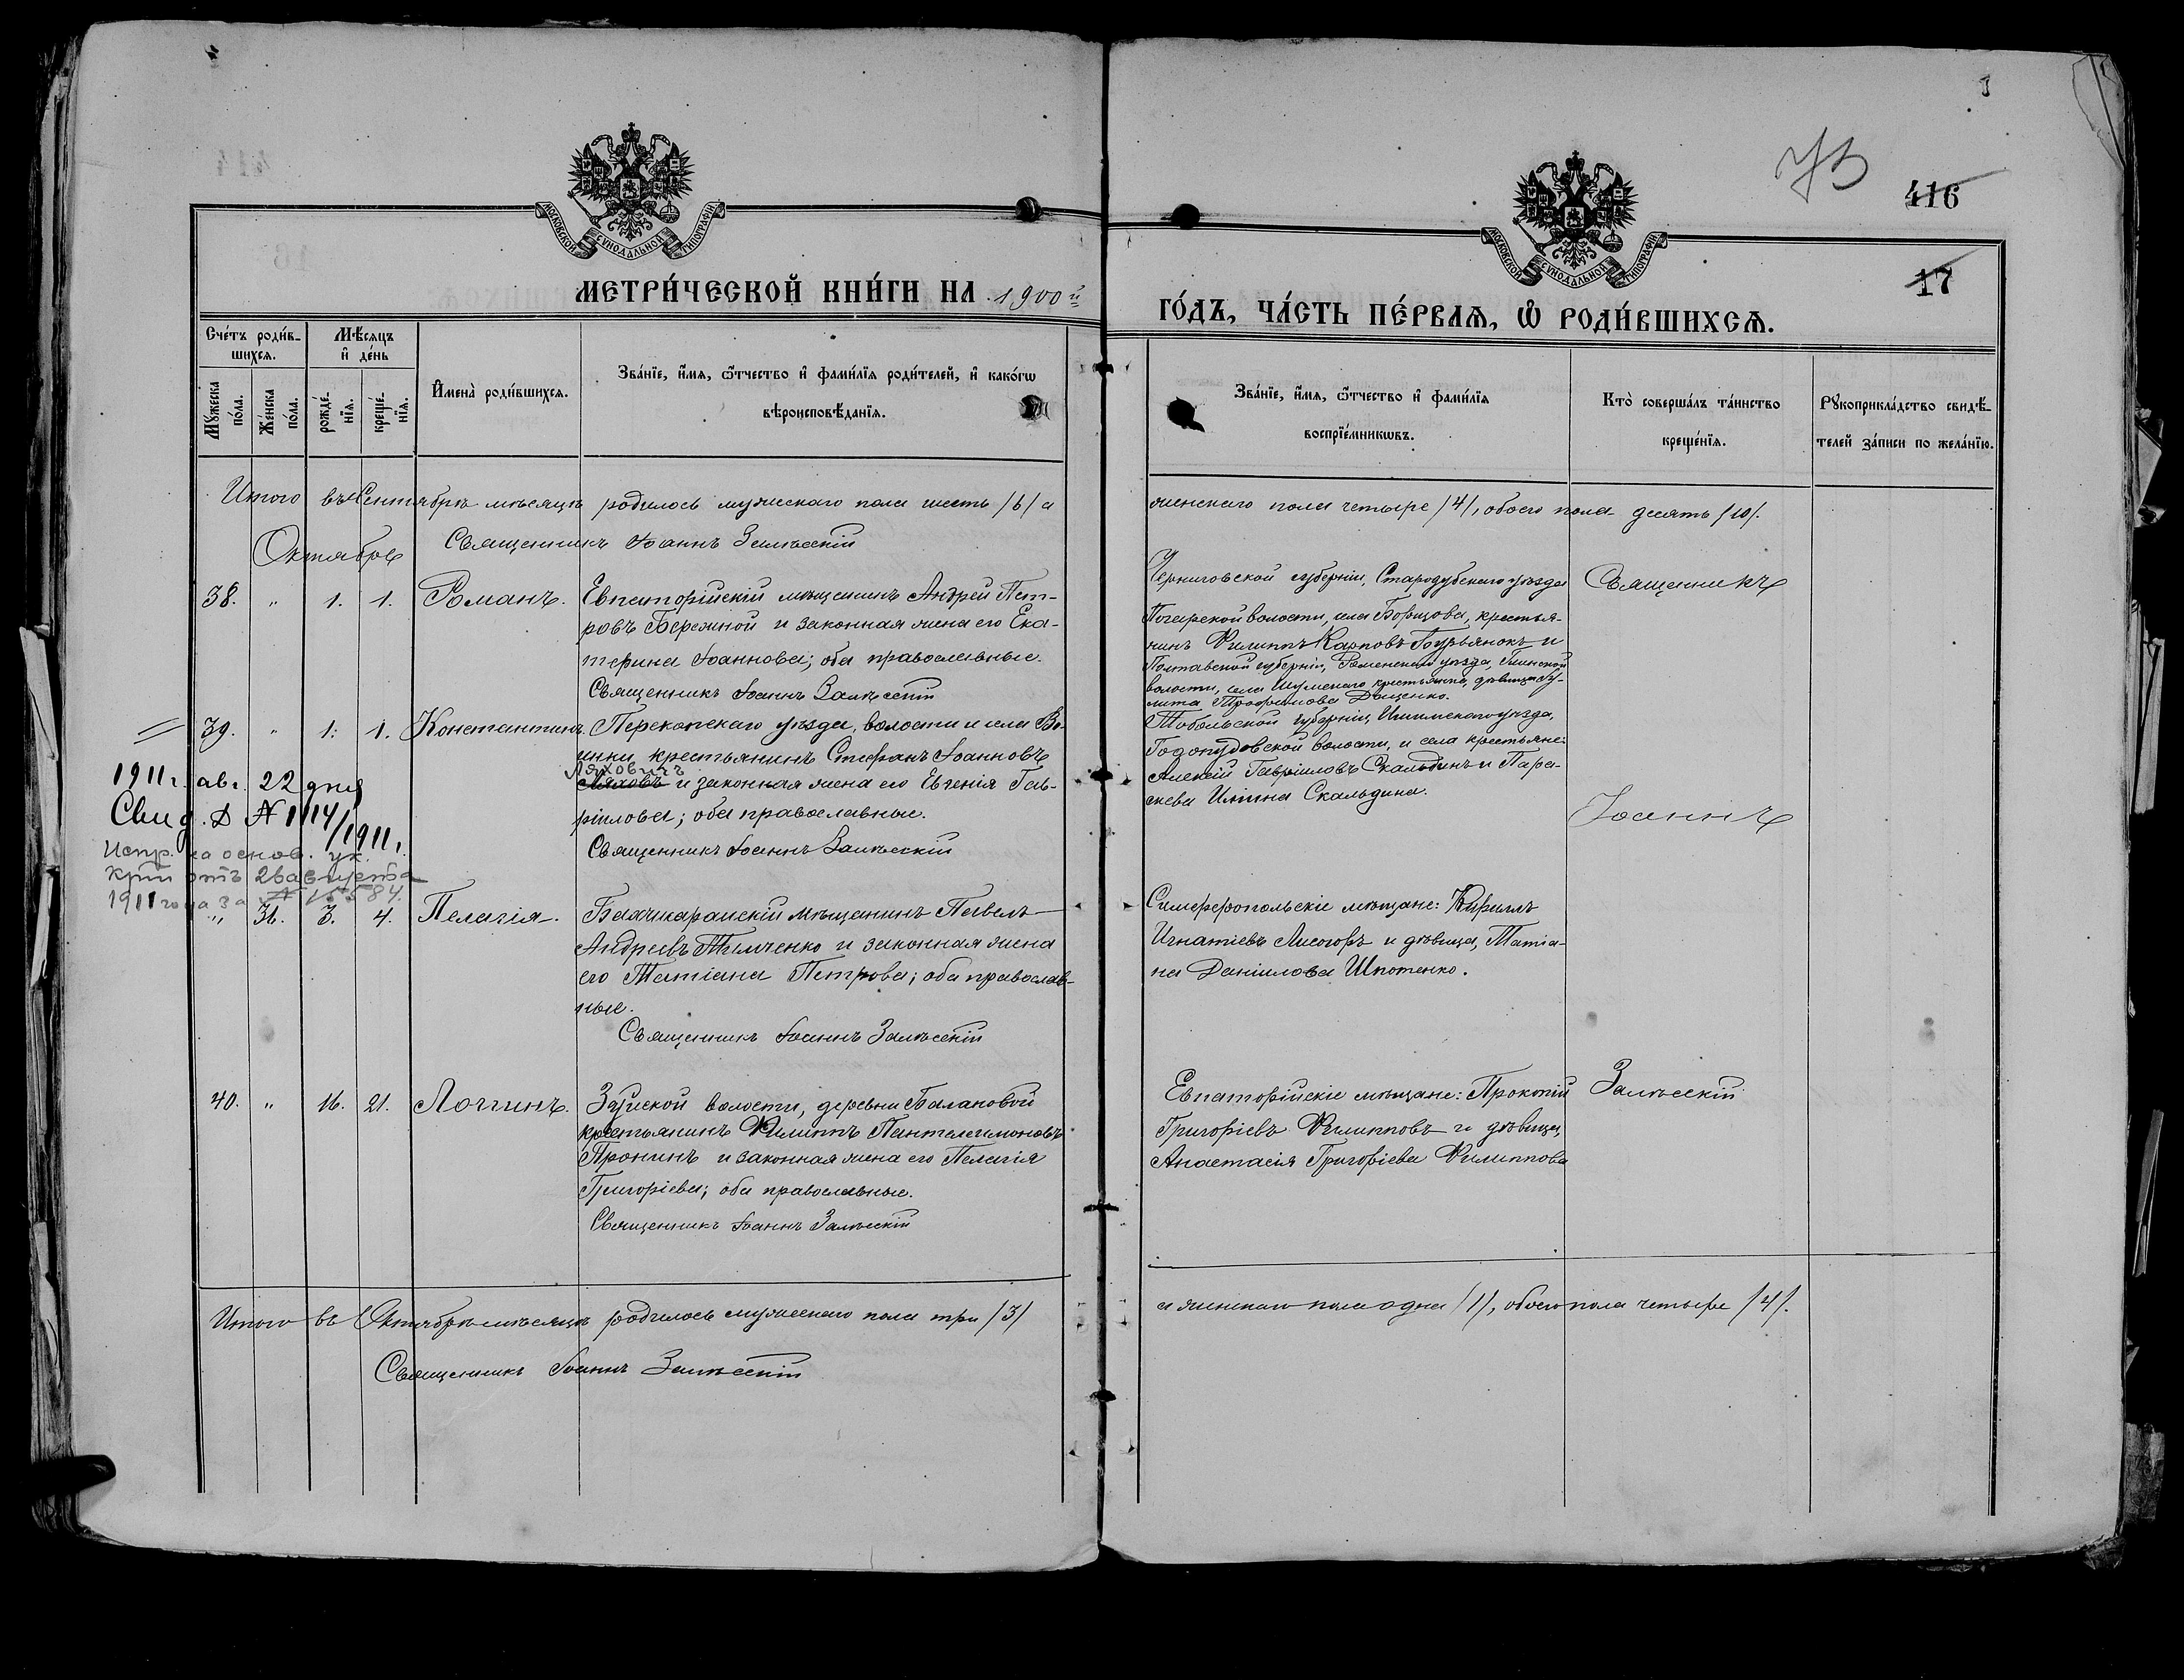 416
17
МОСКОВСКОЙ СѴНОДАЛЬНОЙ ТИПОГРАФІИ
МОСКОВСКОЙ СѴНОДАЛЬНОЙ ТИПОГРАФІИ
МЕТРИ́ЧЕСКОЙ КНИ́ГИ НА 1900й
ГО́ДЪ, ЧА́СТЬ ПЕ́РВАѦ, Ѡ҆ РОДИ́ВШИХСѦ.
Сче́тъ роди́в-
шихсѧ.
Мѣ́сѧцъ
и҆ де́нь
Мꙋ́жеска по́ла.
Же́нска по́ла.
рожде́-
нїѧ.
креще́-
нїѧ.
И҆мена̀ роди́вшихсѧ.
Зва́нїе, и҆́мѧ, ѻ҆́тчество и҆ фами́лїѧ роди́телей, и҆ како́гѡ
вѣроисповѣ́данїѧ.
Зва́нїе, и҆́мѧ, ѻ҆́тчество и҆ фами́лїѧ
воспрїе́мникѡвъ.
Кто̀ соверша́лъ та́инство
креще́нїѧ.
Рꙋкоприкла́дство свидѣ́-
телей за́писи по жела́нїю.
Итого въ Сентябрѣ мѣсяцѣ родилось мужескаго пола шесть /6/ а
женскаго пола четыре /4/, обоего пола десять /10/.
Священникъ Іоаннъ Залѣсскій
Октябрь
38. " 1. 1. Романъ.
Евпаторійскій мѣщанинъ Андрей Пет-
ровъ Бережной и законная жена его Ека-
терина Іоаннова; оба православные.
Священникъ Іоаннъ Залѣсскій
Черниговской губерніи, Стародубскаго уѣзда
Погарской волости, села Борщова, крестья-
нинъ Филиппъ Карповъ Бурьянокъ и
Полтавской губерніи, Роменскаго уѣзда, Глинской
волости, села Шумскаго крестьянка, дѣвица Іу-
лита Трофимова Даценко.
Священникъ
39. " 1. 1. Константинъ.
Перекопскаго уѣзда, волости и села Во-
инки крестьянинъ Стефанъ Іоанновъ
Ляховичъ
Ляховъ и законная жена его Евгенія Гав-
ріилова; оба православные.
Священникъ Іоаннъ Залѣсскій
Тобольской губерніи, Ишимскаго уѣзда,
волости, и села крестьяне:
Алексій Гавріиловъ Скальдинъ и Пара-
скева Ильина Скальдина.
Іоаннъ
1911 г. авг. 22 дня
Свид. № 1114/1911 г.
Испр. на основ. ук.
1911 года за № 15584.
" 31. 3. 4. Пелагія.
мѣщанинъ Павелъ
Андреевъ и законная жена
его Татіана Петрова; оба православ-
ные.
Священникъ Іоаннъ Залѣсскій
Симферопольскіе мѣщане: Кириллъ
Игнатіевъ Лисогоръ и дѣвица, Татіа-
на Даніилова Шпотенко.
40. " 16. 21. Логгинъ.
Зуйской волости, деревни Балановой
крестьянинъ Филиппъ Пантелеимоновъ
Пронинъ и законная жена его Пелагія
Григоріева; оба православные.
Священникъ Іоаннъ Залѣсскій
Евпаторійскіе мѣщане: Прокопій
Григоріевъ Филипповъ и дѣвица,
Анастасія Григоріева Филиппова
Залѣсскій
Итого въ Октябрѣ мѣсяцѣ родилось мужескаго пола три /3/
а женскаго пола одна /1/, обоего пола четыре /4/.
Священникъ Іоаннъ Залѣсскій